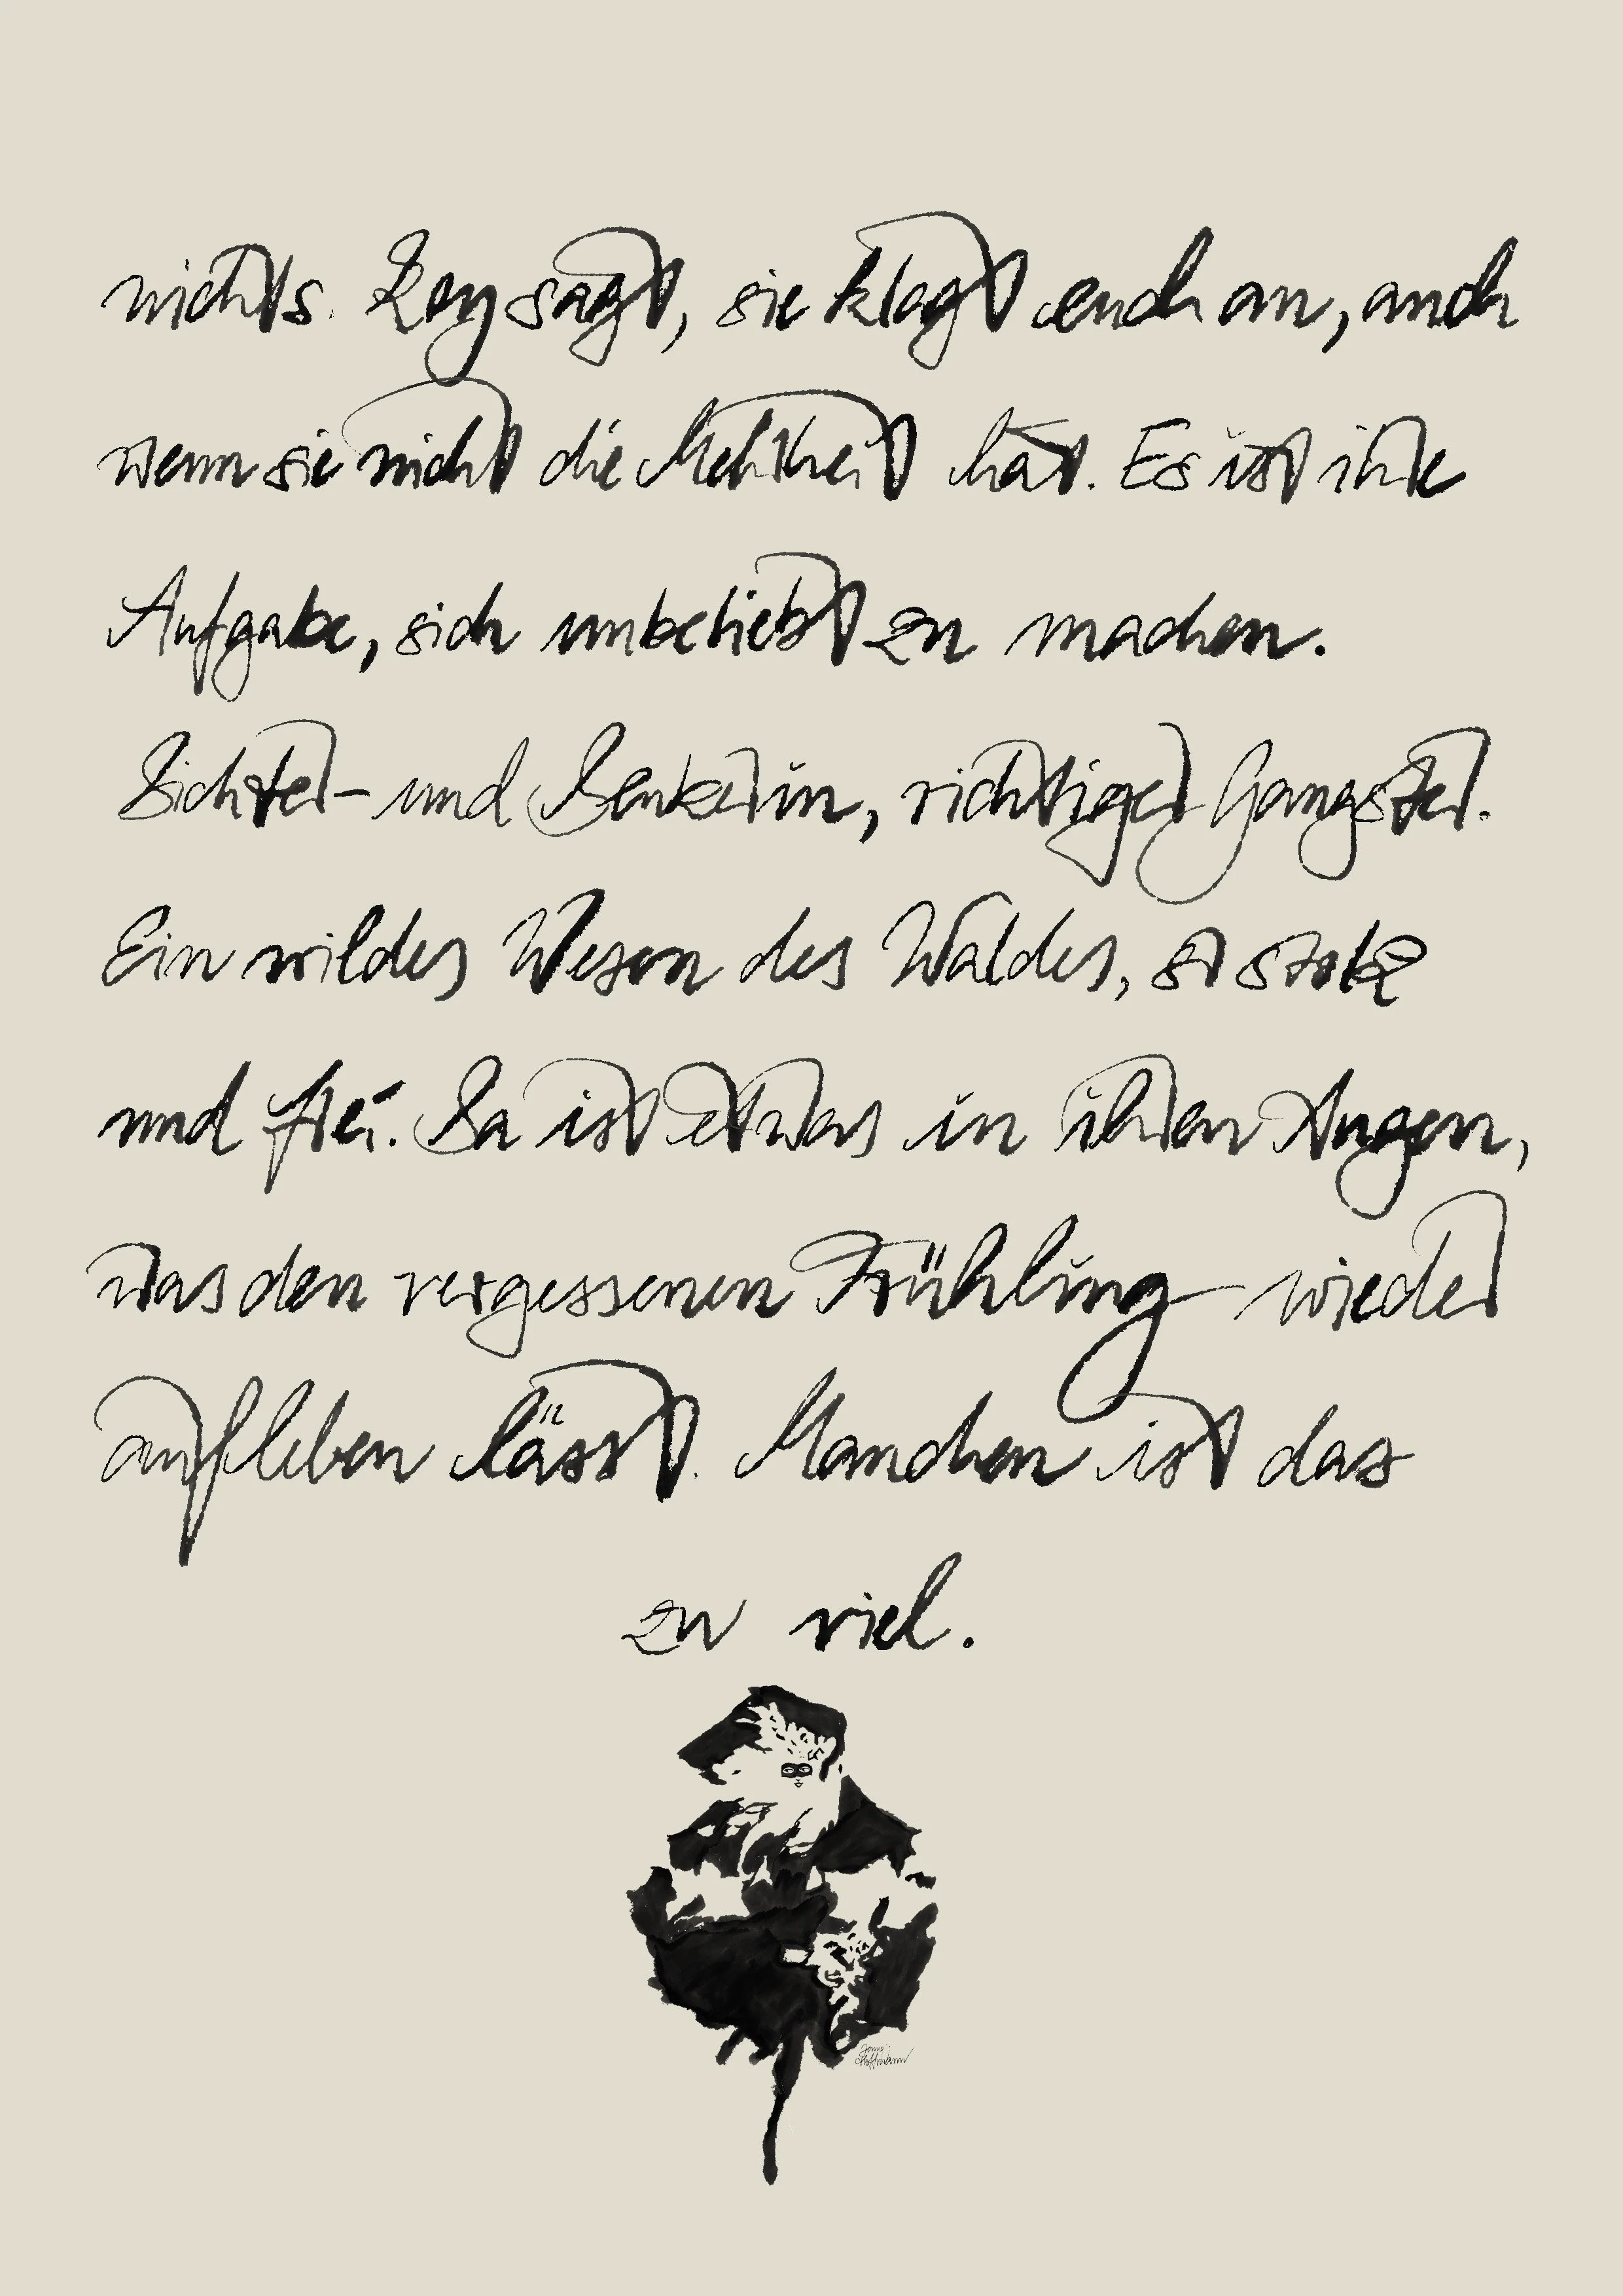 nichts. Rey sagt, sie klagt euch an, auch
wenn sie nicht die Mehrheit hat. Es ist ihre
Aufgabe, sich unbeliebt zu machen.
Dichter- und Denkerin, richtiger Gangster.
Ein wildes Wesen des Waldes, so stolz
und frei. Da ist etwas in ihren Augen,
was den vergessenen Frühling wieder
aufleben lässt. Manchen ist das
zu viel.